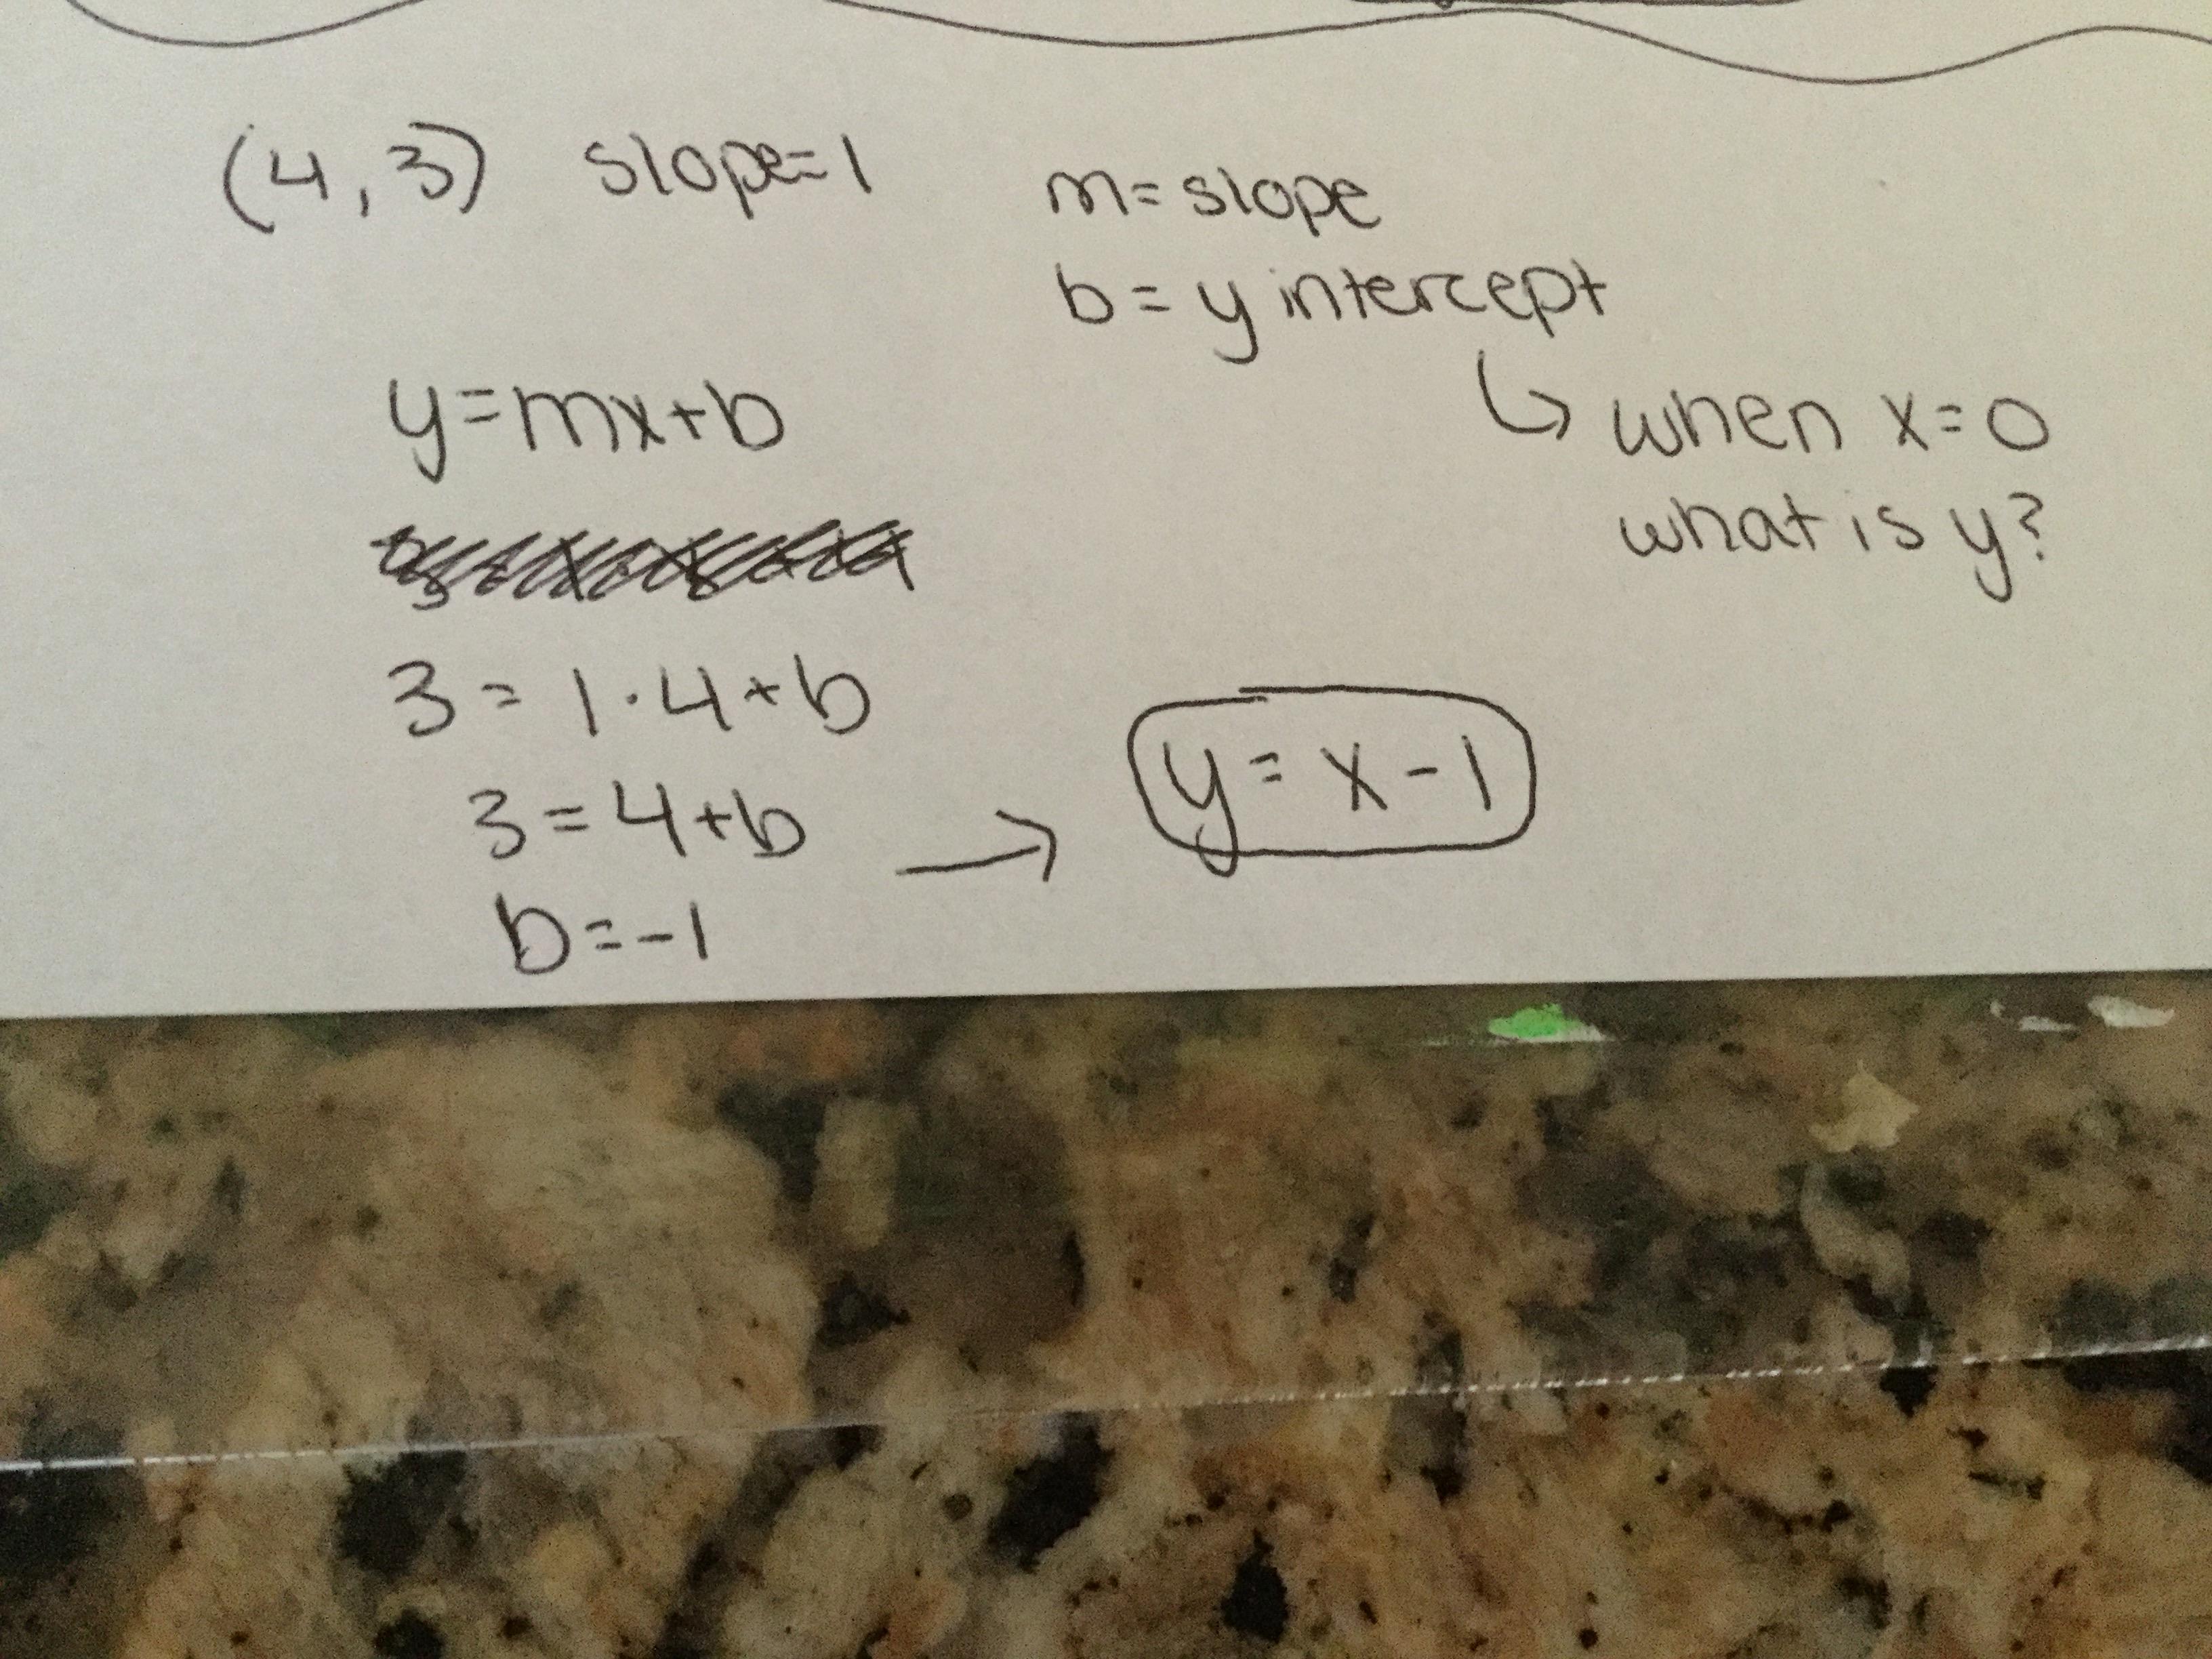 (4,3) slope=1
m=slope
b=y intercept
↳ when x=0
what is y?
y=mx+b
3=1·4+b
3=4+b
b=-1
→ y=x-1